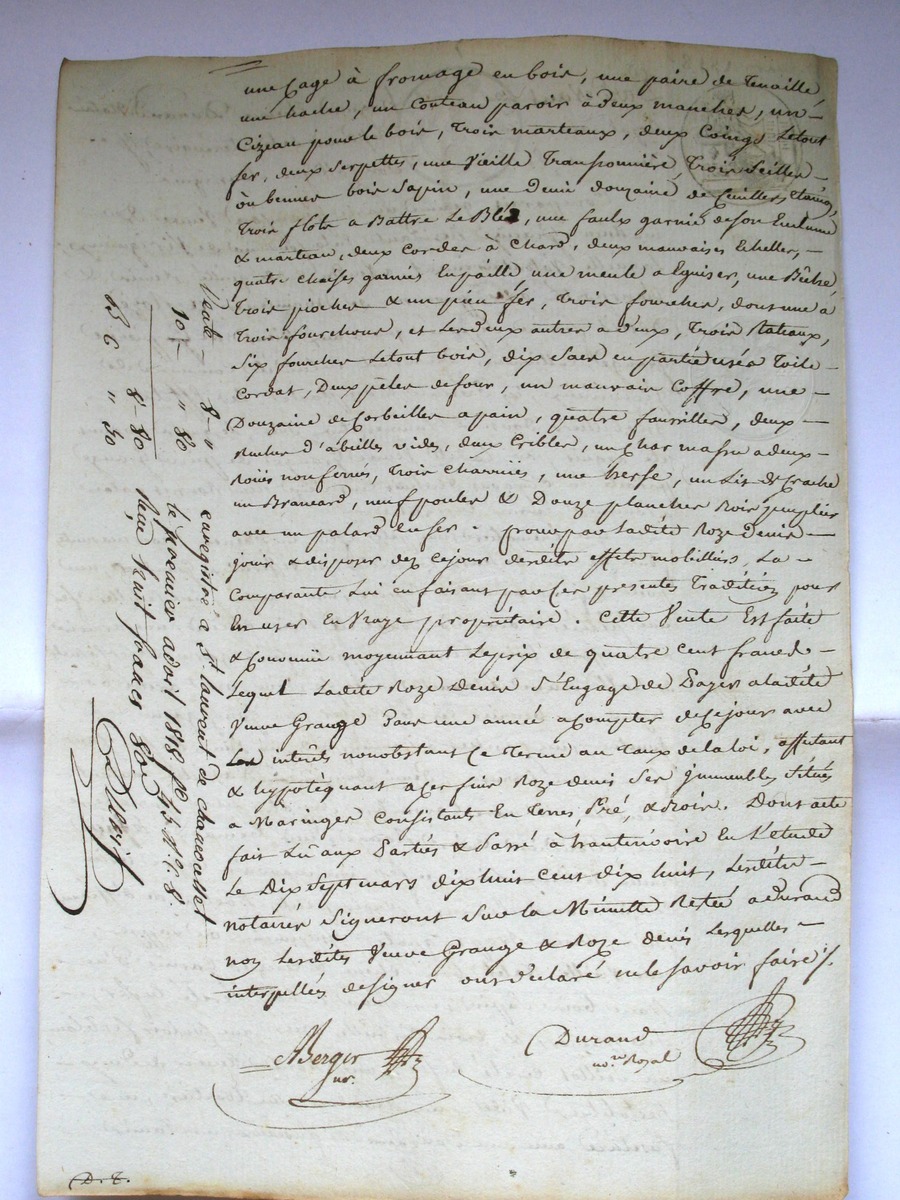 une Cage à fromage en bois, une paire de Tenaille
une hache, un Couteau paroir à deux manches, un
Cizeau pour le bois, Trois marteaux, deux Coings Letout
fer, deux Serpettes, une Vieille Transponnière, Trois Seilles
ou bennes bois Sapin, une demi douzaine de Cuilliers étaing,
Trois flots a Battre Le Bled, une faulx garnie de son Enclume
& marteau, deux Cordes à Chard, deux mauvaises Echelles,
quatre Chaises garnies En paille une meule a Eguiser, une Bêche,
Trois pioches & un pieu fer, Trois fourches, dont une a
Trois fourchons, et Les deux autres a deux, Trois Rateaux,
Six fourches Letout bois, dix Sacs en partie usés Toile
Cordat, Deux pèles de four, un mauvais Coffre, une
Douzaine de Corbeilles a pain, quatre faucilles, deux
Ruches d'abeilles vides, deux Cribles, un Char massu a deux
Roües non ferrés, Trois Charrües, une herse, un Lit de Crache
un Brancard, neuf poules & Douze planches Bois peuplier
avec un palard en fer. pour par Ladite Roze Denis
jouir & disposer dez Cejour desdits effets mobilliers, La
Comparante Lui en faisant par Ces presentes Tradition pour
En user En Vraye propriétaire. Cette Vente Est faite
& Convenüe moyennant Leprix de quatre Cent francs
Lequel Ladite Roze Denis S'Engage de Payer a Ladite
Veuve Grange Dans une année a Compter de Cejour avec
Les intérêts nonobstant Ce Terme au Taux de la loi, affectant
& hypotéquant a Ces fins Roze denis Ses Immeubles Situés
a Maringes Consistants En Terres, Pré, & Bois. Dont acte
fait Lû aux Parties & Passé à hauterivoire En L'etude
Le Dix Sept mars dix huit Cent dix huit, Lesdits
notaires Signeront Sur la Minutte Restée a Durand
non Lesdites Veuve Grange & Roze denis Lesquelles
interpellées de signer ont déclaré ne le savoir faire ./.
Berger
nore.
Durand
no.re Royal
enregistré a St laurent de chamousset
le premier avril 1818 fo 45 Vo C. 8.
Reçu huit francs
Vente 8 - "
10e " 80
8 - 80
D. T.